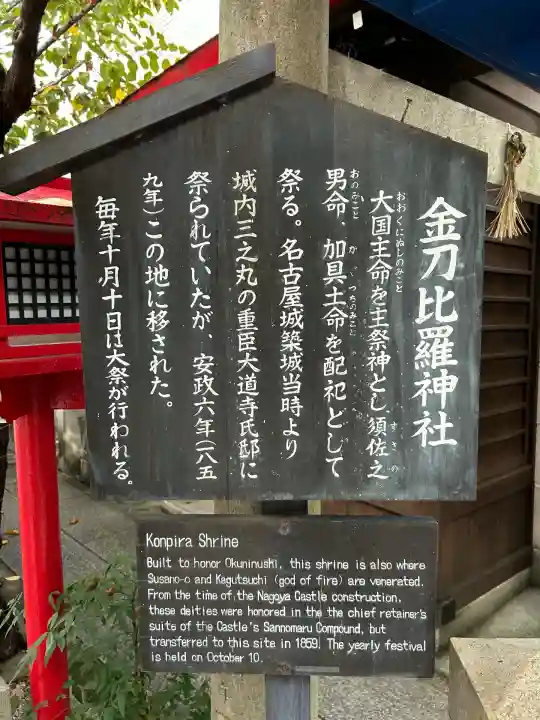 金刀比羅神社
大国主命を主祭神とし須佐之
おおくにぬしのみこと
すさの
男命、加具土命を配祀として
おのみこと
かぐつちのみこと
祭る。名古屋城築城当時より
城内三之丸の重臣大道寺氏邸に
祭られていたが、安政六年(一八五
九年)この地に移された。
毎年十月十日は大祭が行われる。
Konpira Shrine
Built to honor Okuninushi, this shrine is also where
Susano-o and Kagutsuchi (god of fire) are venerated.
From the time of the Nagoya Castle construction,
these deities were honored in the the chief retainer's
suits of the Castle's Sannomaru Compound, but
transferred to this site in 1859. The yearly festival
is held on October 10.